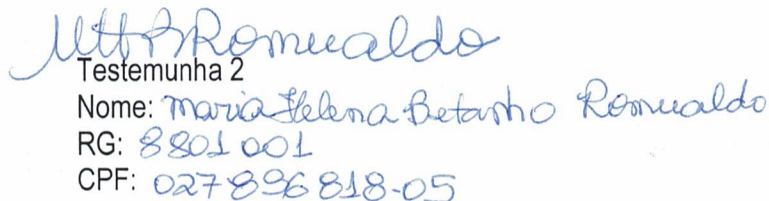 MHBRomualdo
Testemunha 2
Nome: Maria Helena Betanho Romualdo
RG: 8801001
CPF: 027896818-05